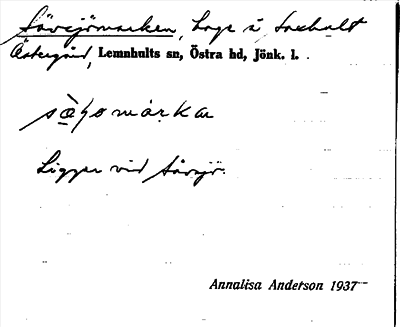 Sävsjömarken, hage å Saxhult
Östergård, Lemnhults sn, Östra hd, Jönk. l.
Ligger vid Sävsjö.
Annalisa Anderson 1937